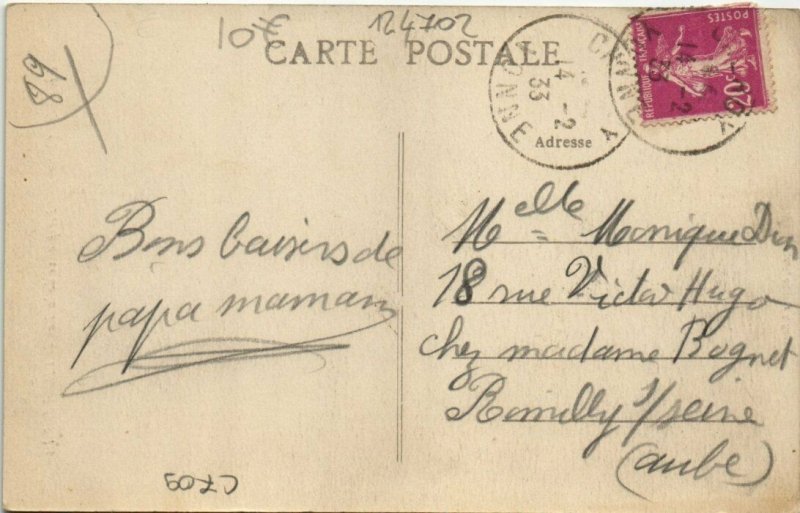 10€
124702
CARTE POSTALE
89
14 -2
33
Adresse
POSTES
20c
RÉPUBLIQUE FRANÇAISE
14 -2
33
Bons baisers de
papa maman
Melle = Monique
18 rue Victor Hugo
chez madame Bognet
Romilly s/seine
(aube)
C709